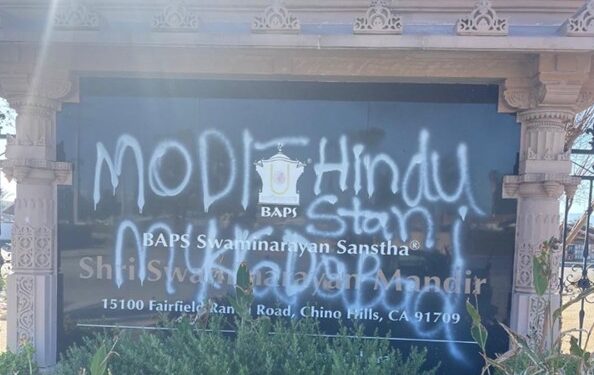 MODI Hindu
BAPS
Stan
BAPS Swaminarayan Sanstha®
MURDaBad
Shri Swaminarayan Mandir
15100 Fairfield Ranch Road, Chino Hills, CA 91709